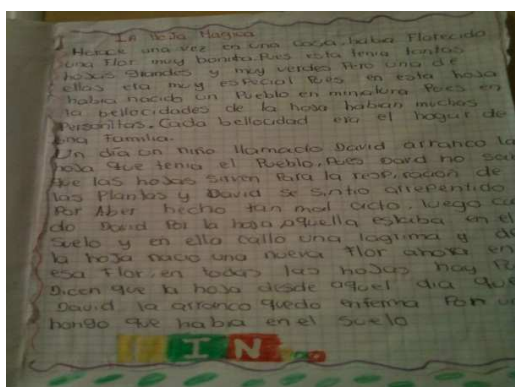 La Hoja Magica
Herace una vez en una casa, habia Florecido
una Flor muy bonita. Pues esta tenia tantas
hojas grandes y muy verdes Pero una de
ellas era muy especial Pues en esta hoja
habia nacido un Pueblo en miniatura Pues en
la bellocidades de la hoja habian muchas
Personitas. Cada bellocidad era el hogar de
una Familia.
Un dia un niño llamado David arranco la
hoja que tenia el Pueblo, Pues David no
que las hojas sirven Para la respiracion de
las Plantas y David se sintio arrepentido
Por Aber hecho tan mal acto, luego
do David la hoja aquella estaba en el
suelo y en ella callo una lagrima y de
la hoja nacio una nueva Flor ahora en
esa Flor, en todas las hojas hay
Dicen que la hoja desde aquel dia que
David la arranco quedo enferma Por un
hongo que habia en el suelo
FIN...